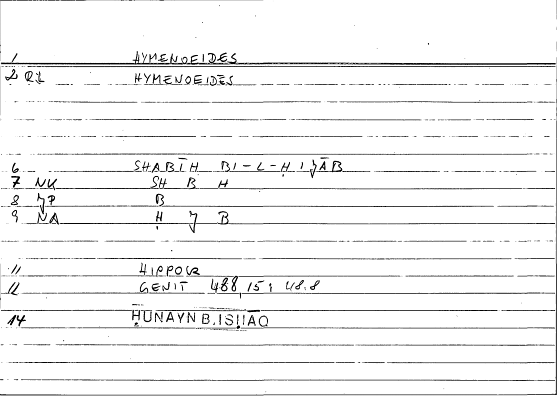 1 HYMENOEIDES
2 RI HYMENOEIDES
6 SHABĪH BI-L-ḤIJĀB
7 NK SH B H
8 JP B
9 NA Ḥ J B
11 HIPPOCR
12 GENIT 488,15; 48.8
14 ḤUNAYN B.ISḤĀQ